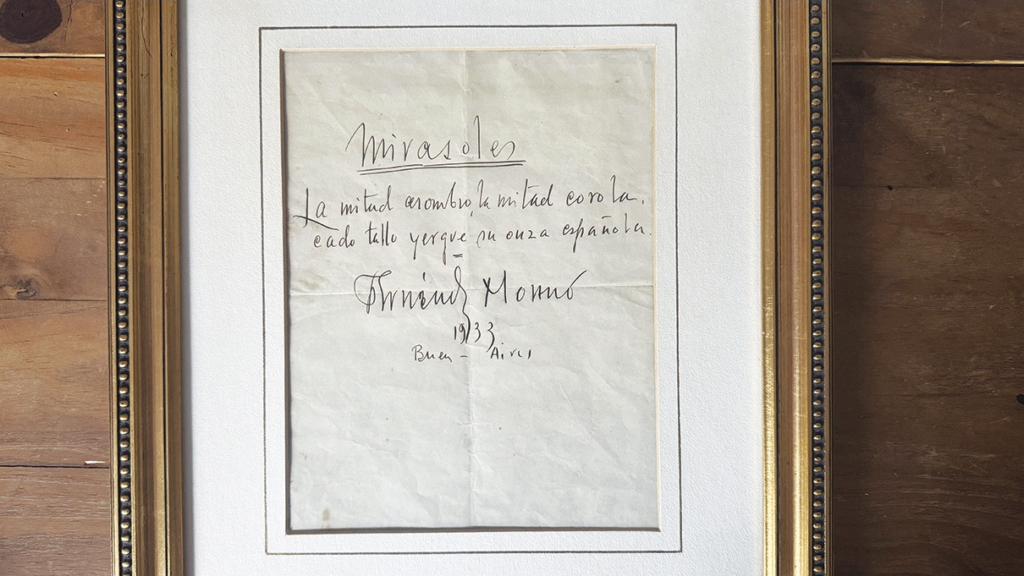 Mirasoles
La mitad asombro, la mitad corola,
cada tallo yergue su onza española.
Fernández Moreno
1933
Buenos Aires